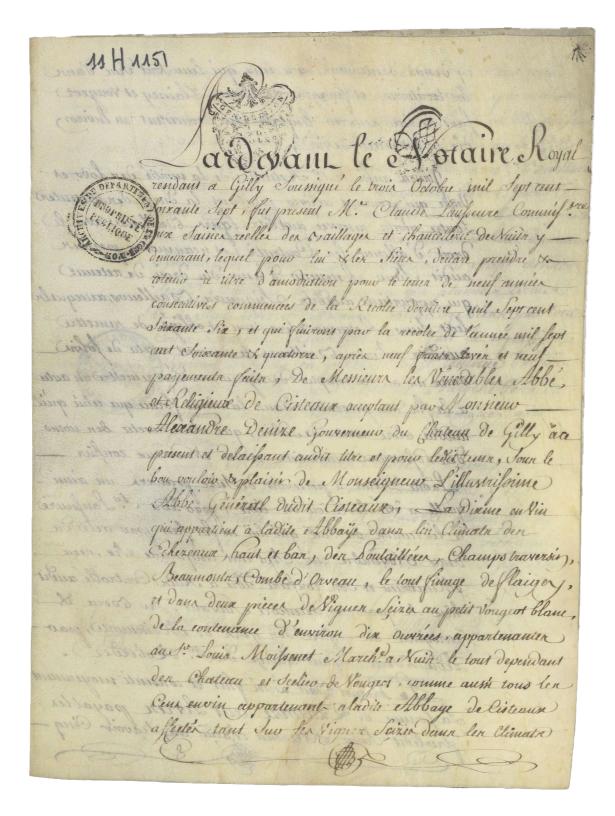 11 H 1151
Pardevant le Notaire Royal
rendant a Gilly Soussigné le trois Octobre mil Sept cent
soixante Sept, fut present Mr. Claude Commiss.re
aux Saisies reelles des Bailliages et chancellerie de Nuits y
demeurant, lequel pour lui & les Siens, declare prendre &
retenir a titre d'amodiation pour le terme de neuf années
consecutives commencées de la Recolte derniere mil Sept cent
Soixante Six, et qui finiront par la recolte de l'année mil Sept
cent Soixante & quatorze, après neuf fruits levés et neuf
payements faits; de Messieurs les Vénérables Abbé,
et Religieux de Cisteaux acceptant par Monsieur
Alexandre Denize Gouverneur du Chateau de Gilly à ce
present et delaissant audit titre et pour ledit tems, Sous le
bon vouloir & plaisir de Monseigneur L'illustrissime
Abbé Général dudit Cisteaux, La dixme en Vin
qui appartient à ladite Abbaÿe dans les Climats des
Echezeaux, haut et bas, des Poulaillères, Champs traversin,
Beaumonts, Combe d'Orveau, le tout finage de Flagey,
et dans deux pieces de Vignes Scizes au petit Vougeot blanc
de la contenance d'environ dix ouvrées, appartenantes
au Sr. Louis Moissenet March.d a Nuits le tout dependant
des Chateau et Scelier de Vougeot, comme aussi tous les
Cens en vin appartenant a ladite Abbaye de Cisteaux
affectés tant Sur les Vignes Scizes dans les Climats